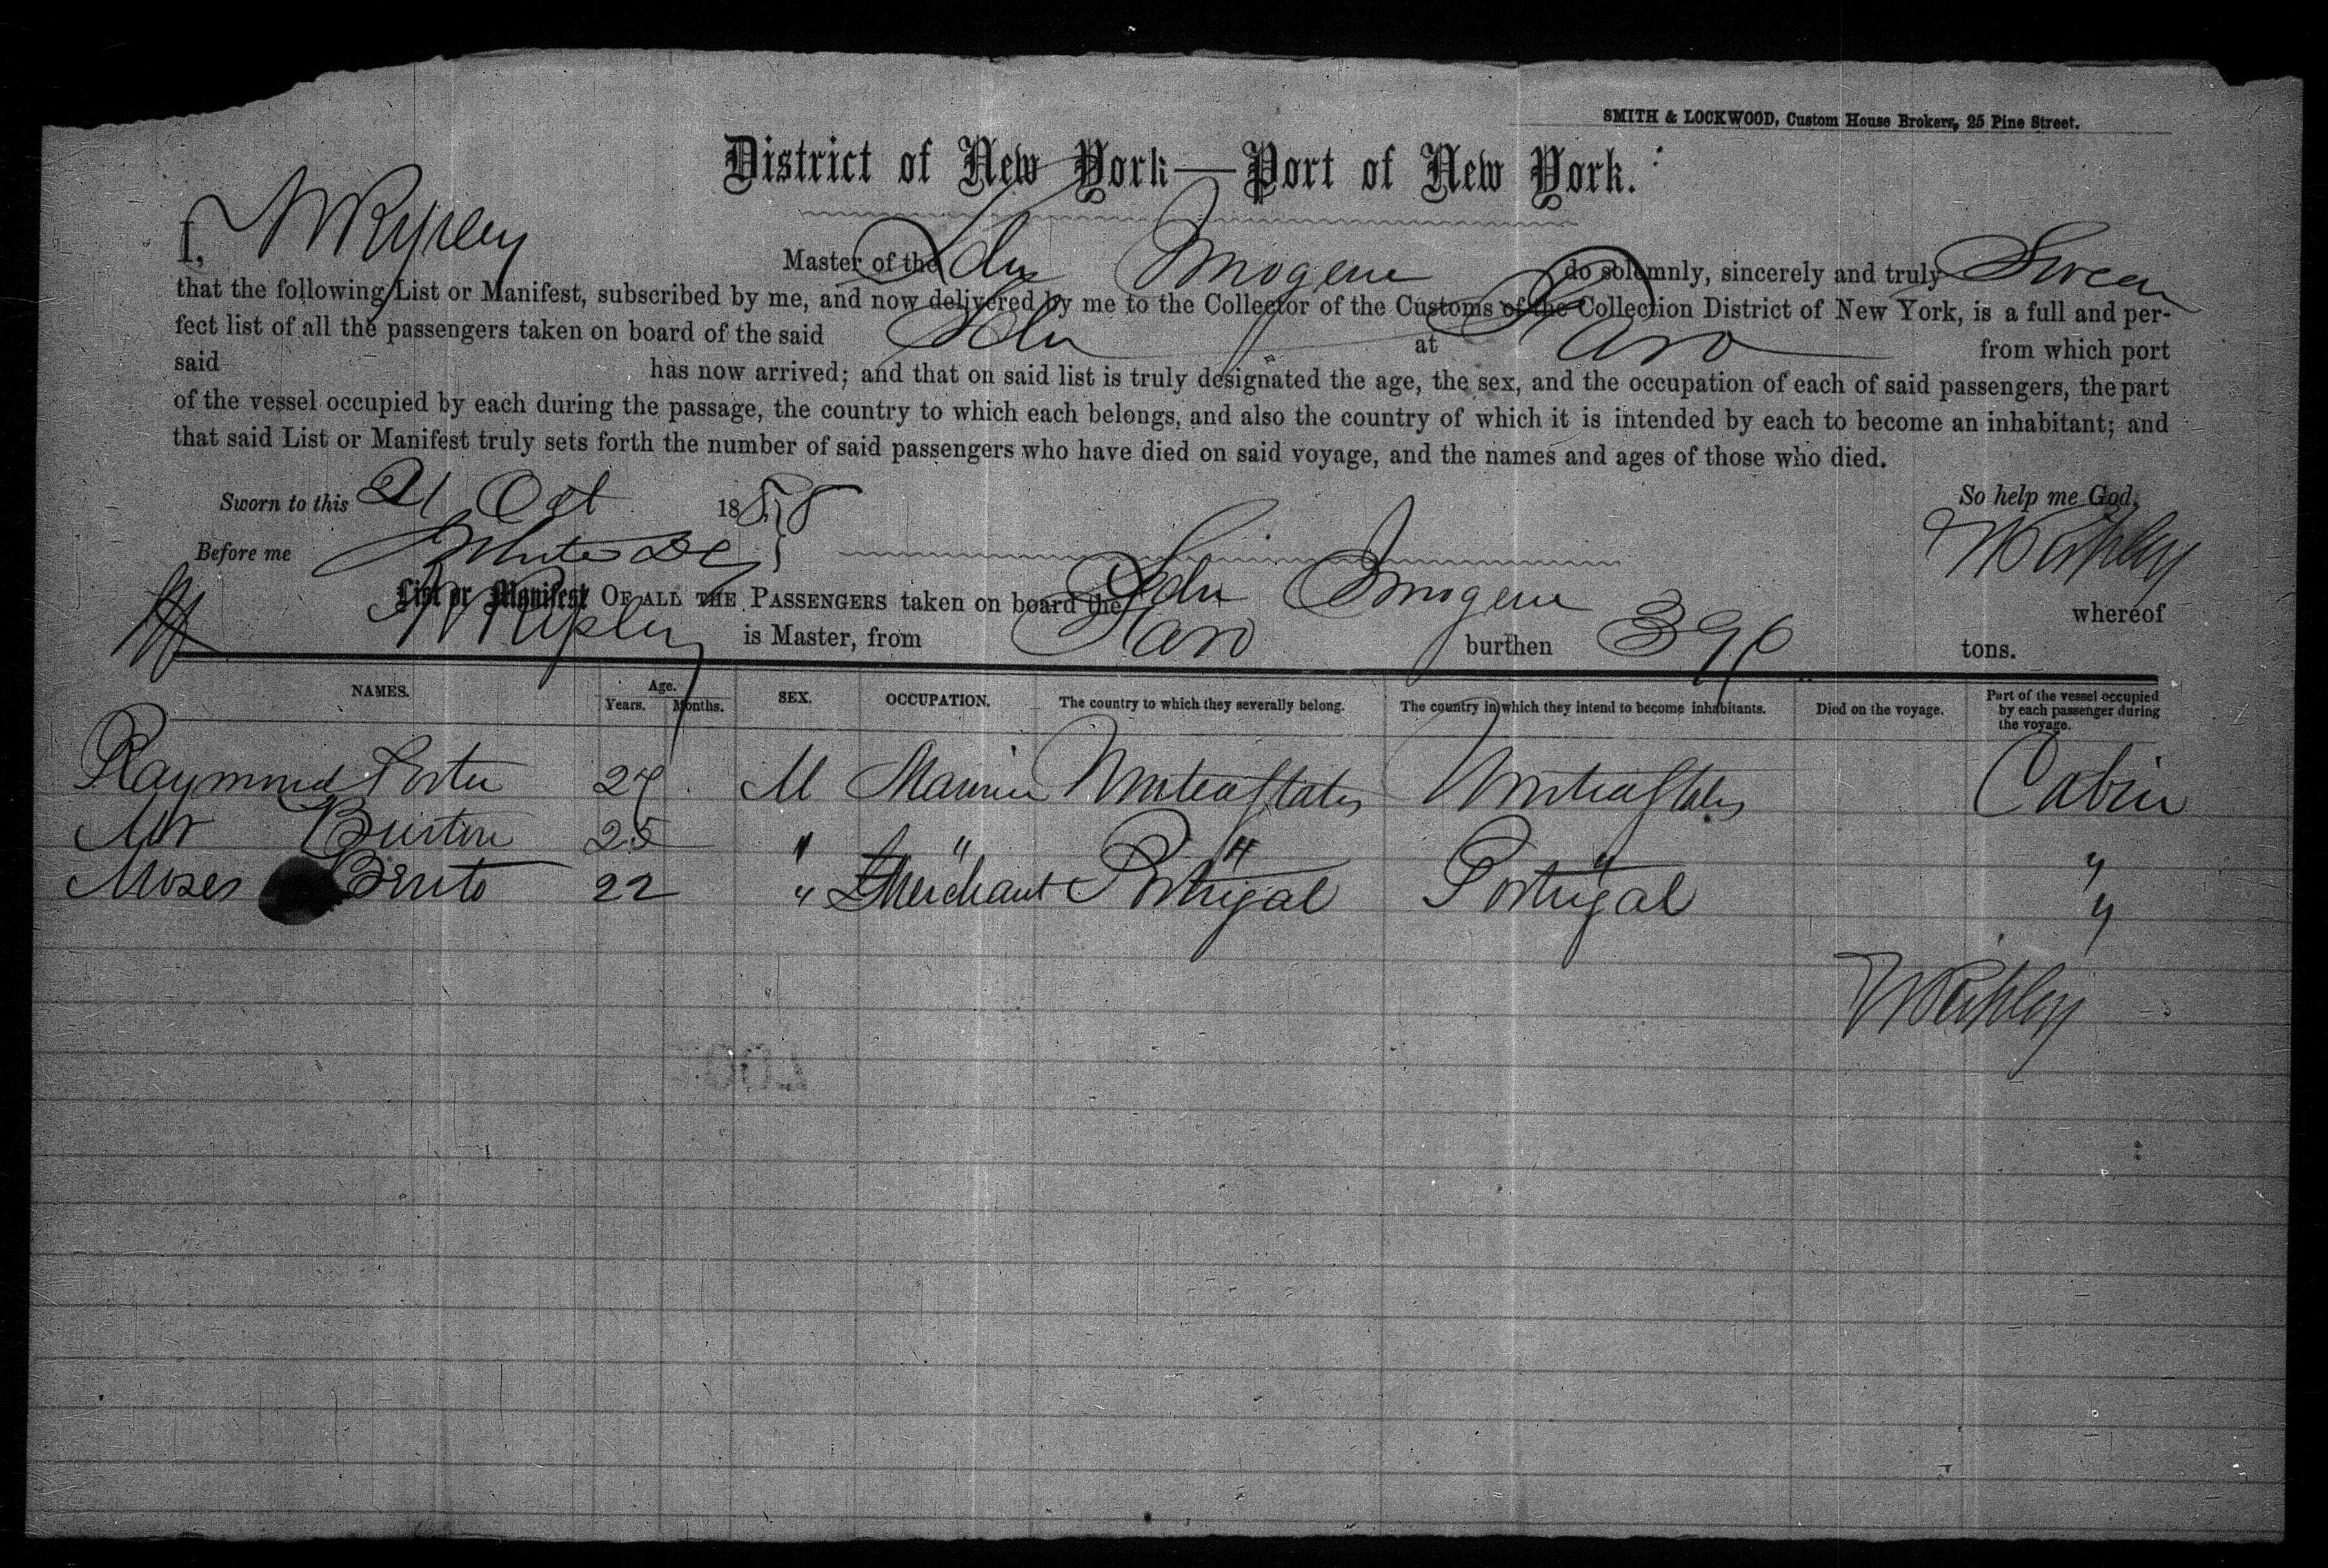 SMITH & LOCKWOOD, Custom House Brokers, 25 Pine Street.
District of New York—Port of New York.
I, W Ripley Master of the Schr Imogene do solemnly, sincerely and truly Swear
that the following List or Manifest, subscribed by me, and now delivered by me to the Collector of the Customs of the Collection District of New York, is a full and per-
fect list of all the passengers taken on board of the said Schr at Faro from which port
said has now arrived; and that on said list is truly designated the age, the sex, and the occupation of each of said passengers, the part
of the vessel occupied by each during the passage, the country to which each belongs, and also the country of which it is intended by each to become an inhabitant; and
that said List or Manifest truly sets forth the number of said passengers who have died on said voyage, and the names and ages of those who died.
Sworn to this 21 Oct 18 So help me God.
Before me W Ripley
List or Manifest OF ALL THE PASSENGERS taken on board the Schr Imogene whereof
W Ripley is Master, from Faro burthen 396 tons.
NAMES. Age. Years. Months. SEX. OCCUPATION. The country to which they severally belong. The country in which they intend to become inhabitants. Died on the voyage. Part of the vessel occupied by each passenger during the voyage.
Raymond 27 M Mariner United States United States Cabin
Mr Burton 25 " " " " "
Moses Bruto 22 " Merchant Portugal Portugal "
W Ripley